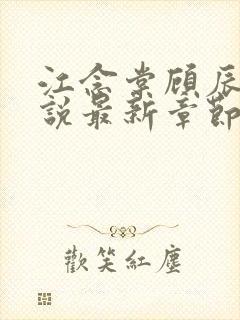 江念棠顾辰
說最新章節
歡笑紅塵